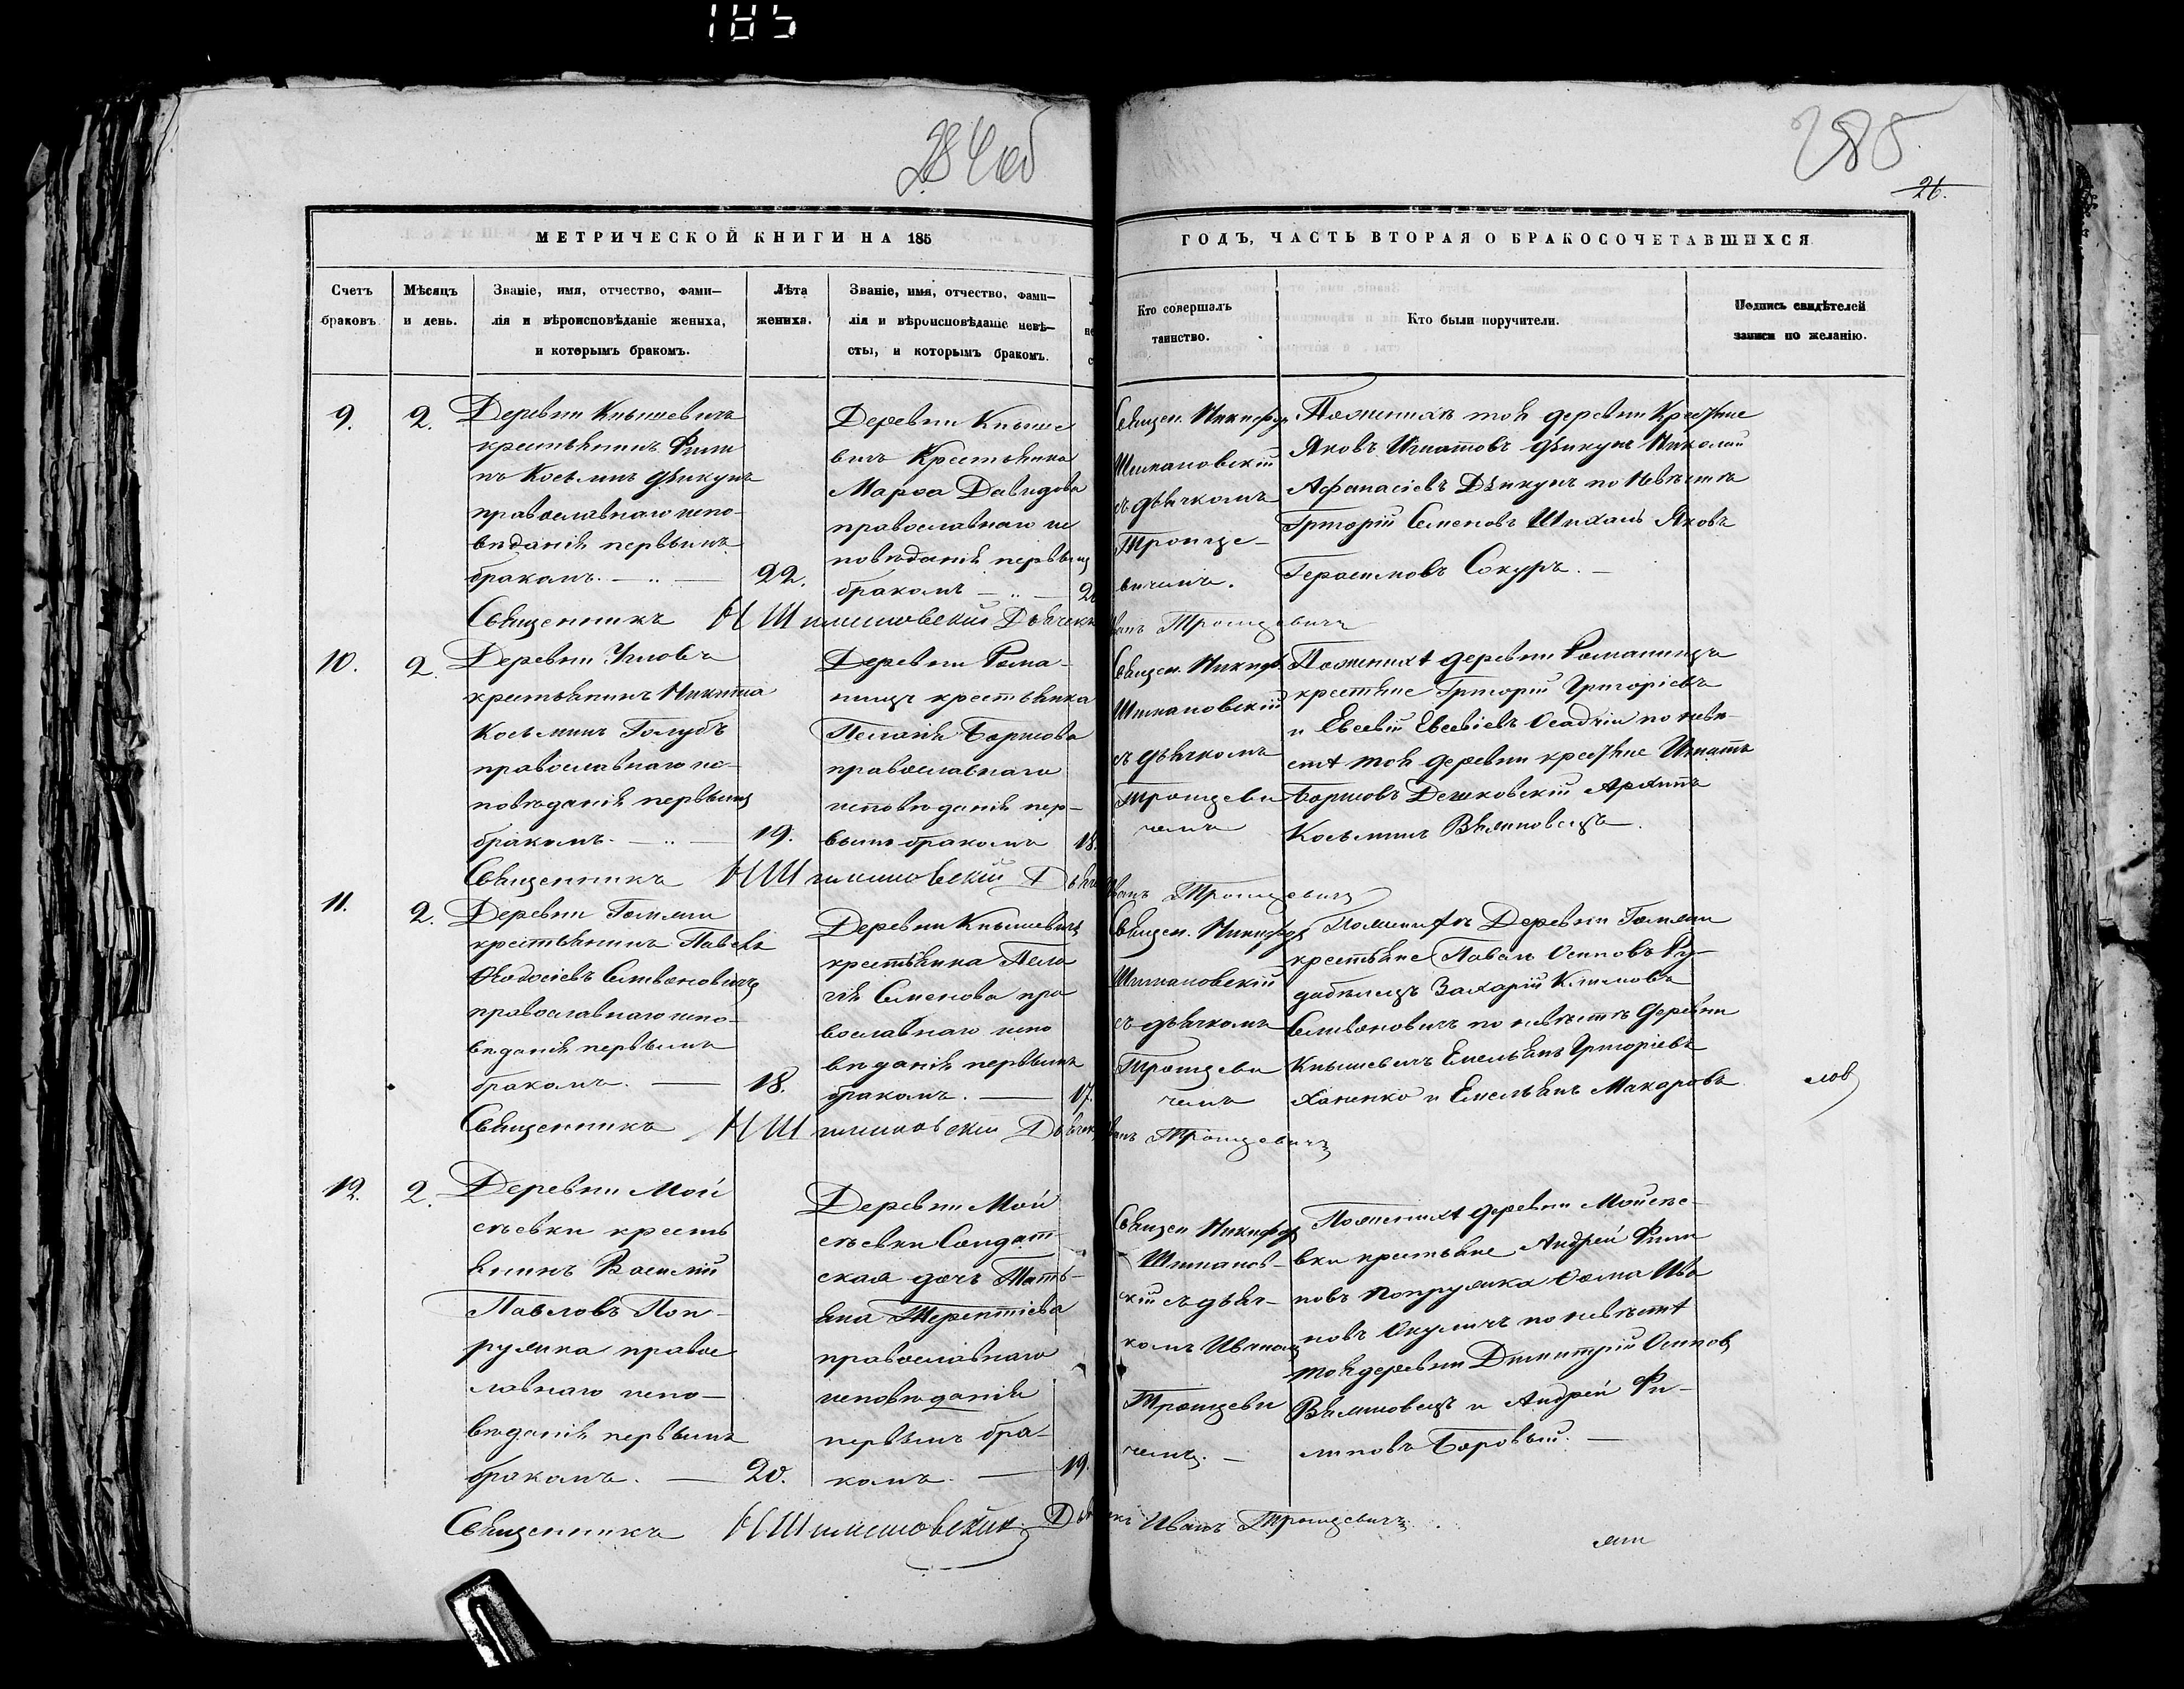 185
284об
285
26.
МЕТРИЧЕСКОЙ КНИГИ НА 185
ГОДЪ, ЧАСТЬ ВТОРАЯ О БРАКОСОЧЕТАВШИХСЯ
Счетъ
браковъ.
Мѣсяцъ
и день.
Званіе, имя, отчество, фами-
лія и вѣроисповѣданіе жениха,
и которымъ бракомъ.
Лѣта
жениха.
Званіе, имя, отчество, фами-
лія и вѣроисповѣданіе невѣ-
сты, и которымъ бракомъ.
Кто совершалъ
таинство.
Кто были поручители.
Подпись свидѣтелей
записи по желанію.
9.
2.
Деревни Кнышевичъ
крестьянинъ Фили
пъ Косьминъ Дзикунъ
православнаго испо-
вѣданія первымъ
бракомъ.
22.
Деревни Кныше
вичъ Крестьянка
Марѳа Давидова
православнаго ис
повѣданія первымъ
бракомъ
Священ. Никифоръ
Шимановскій
съ дьячкомъ
Троице-
вичемъ.
По женихѣ той деревни Крестяне
Яковъ Игнатовъ Дзикунъ Николай
Афанасіевъ Дзикунъ по невѣсте
Григорій Семеновъ Яковъ
Герасимовъ Сокуръ.
Священникъ Н Шимановскій Дьячекъ Иванъ Троицевичъ
10.
2.
Деревни Угловъ
крестьянинъ Никита
Косьминъ Голубъ
православнаго ис-
повѣданія первымъ
бракомъ.
19.
Деревни Рома-
нищъ крестьянка
Пелагія Борисова
православнаго
исповѣданія пер-
вымъ бракомъ
18.
Священ. Никиф.
Шимановскій
съ дьячкомъ
Троицеви
чемъ
По женихѣ деревни Романищъ
крестяне Григорій Григоріевъ
и Евсевій Евсевіевъ Осадчій по невѣ-
стѣ той деревни крестяне Игнатъ
Борисовъ Дешковскій Архипъ
Косьминъ
Священникъ Н Шимановскій Дьячекъ Иванъ Троицевичъ
11.
2.
Деревни
крестьянинъ Павелъ
Ѳеодосіевъ Селивоновичъ
православнаго испо-
вѣданія первымъ
бракомъ.
18.
Деревни Кнышевичъ
крестьянка Пела
гія Семенова пра
вославнаго испо
вѣданія первымъ
бракомъ.
17.
Священ. Никифоръ
Шимановскій
съ дьячкомъ
Троицеви
чемъ
По женихѣ Деревни
крестьяне Павелъ Осиповъ
Захарій Климовъ
Селивоновичъ по невѣстѣ деревни
Кнышевичъ Емельянъ Григоріевъ
Ханенко и Емельянъ Макаровъ
Священникъ Н Шимановскій Дьячекъ Иванъ Троицевичъ
12.
2.
Деревни Мой
сѣевки кресть
янинъ Василій
Павловъ Поп-
ружка правос
лавнаго испо-
вѣданія первымъ
бракомъ.
20.
Деревни Мой
сѣевки Солдат-
ская дочь Тать-
яна Терентіева
православнаго
исповѣданія
первымъ бра-
комъ.
19.
Священ Никифоръ
Шиманов-
скій съ дьяч-
комъ Иваномъ
Троицеви
чемъ.
По женихѣ деревни Мойсѣе-
вки крестьяне Андрей Фили
повъ Попружка Ѳома Ива
новъ Окуличъ по невѣстѣ
той деревни Димитрій Осиповъ
и Андрей Фи-
липовъ Боровый.
Священникъ Н Шимановскій Дьячекъ Иванъ Троицевичъ